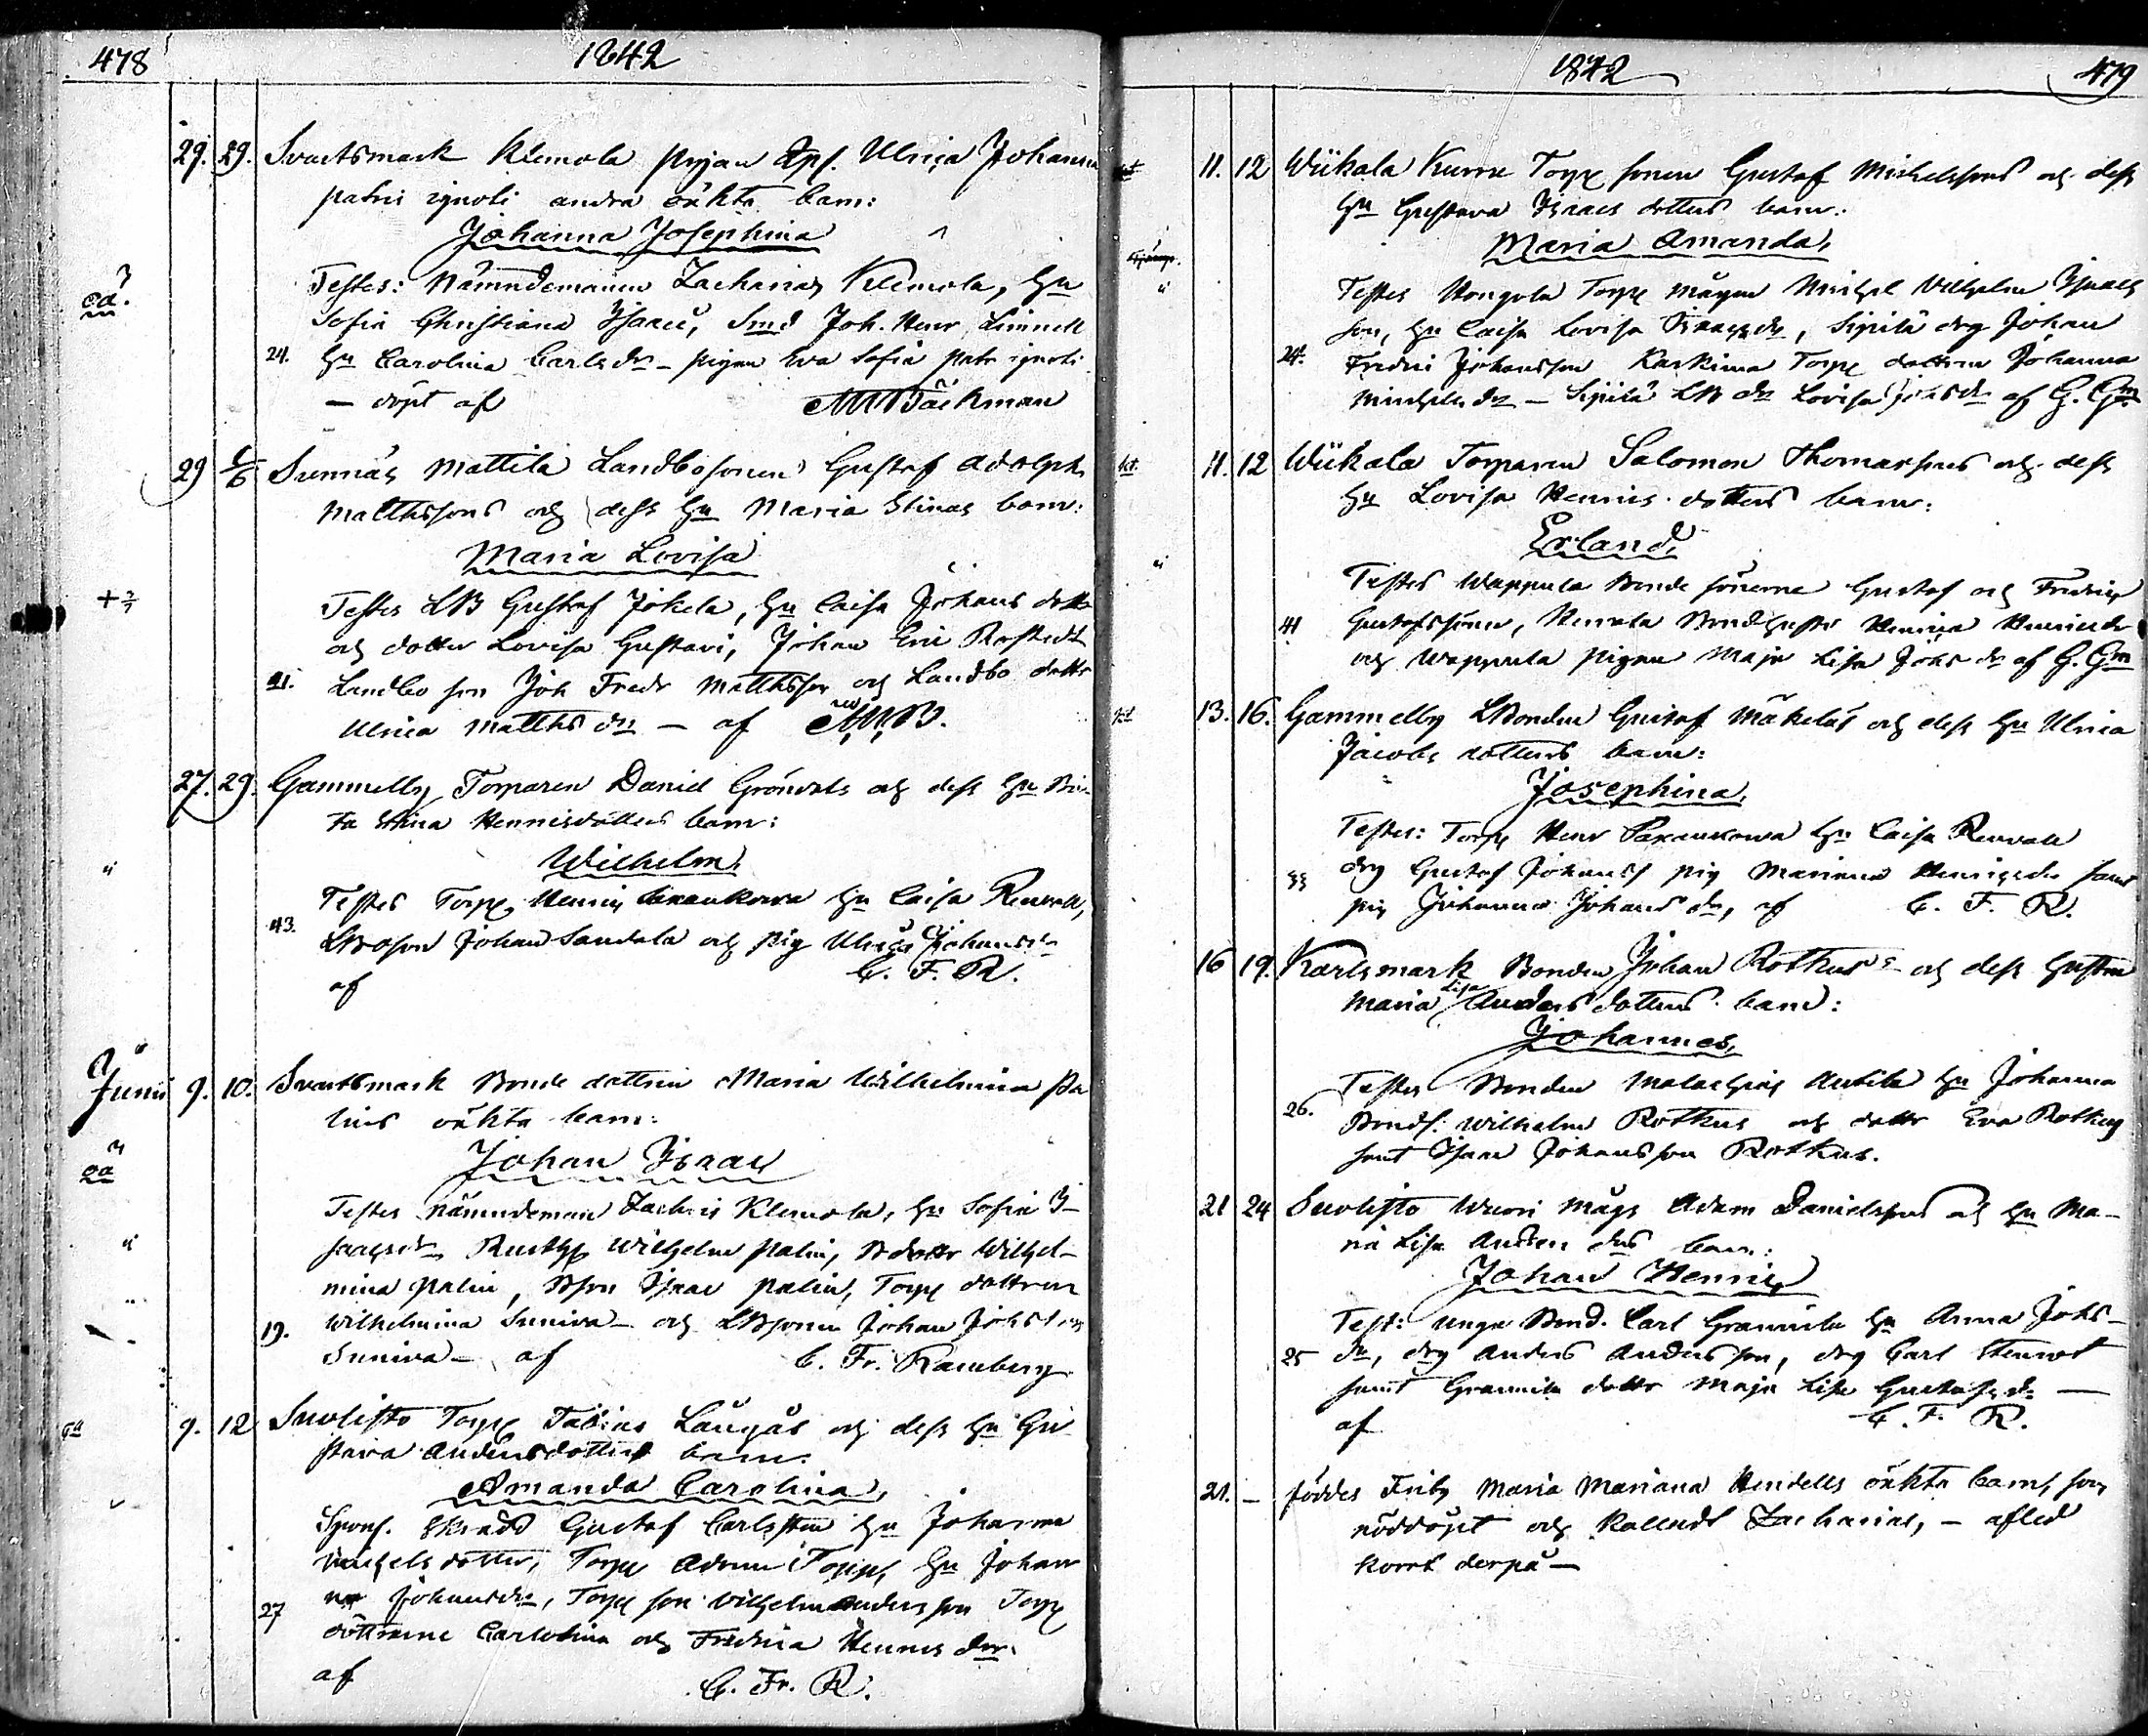 478 1842
29. 29. Svartsmark Klemola pigan Ulrica Johanna
patris ignoti andra oäkta barn:
Johanna Josephina
Testes: Nämndemannen Zacharias Klemola, hu
Sofia Christiana Isaacs, Smd Joh. Henr Linnell
24. hu Carolina Carlsdr - pigan Eva Sofia patr ignoti
— döpt af Bäckman
29 1/6 Sunnäs Mattila Landbosonen Gustaf Adolph
Matthssons och dess hu Maria Stinas barn:
Maria Lovisa
Testes LB Gustaf Jokela, hu Caisa Johans dottr
och dotter Lovisa Gustavi, Johan Eric Rostedt
21. Landbo son Joh Fredr Matthsson och Landbo dottr
Ulrica Matths dr — af
27. 29. Gammelby Torparen Daniel Grönvals och dess hu Bri-
ta Stina Henricsdotters barn:
Wilhelm,
Testes Torp. Henric hu Caisa Renvall,
43. LBoson Johan Sandala och pig Ulrica Johansdr
af C. F. R.
Junii 9. 10. Svartsmark Bonde dottren Maria Wilhelmina Pa
lins oäkta barn:
Johan Isaac
Testes nämndeman Zachris Klemola, hu Sofia I-
sacsdr Wilhelm Palin, B dottr Wilhel-
mina Palin, Bson Isaac Palin, Torp dottren
19. Wilhelmina Suniva — och LBsonen Johan Johsson
Suniva — af C. Fr. Ramberg
9. 12 Suolisto Torp Tobias Laugås och dess hu Gu
stava Andersdotters barn:
Amanda Carolina,
Gustaf Carlsten hu Johanna
Michelsdotter, Torp Adam hu Johan
27 na Johansdr, Torp son Wilhelm Andersson Torp
döttrarne Carolina och Fredrica Henrics dr.
af C. Fr. R.
1842 479
11. 12 Wiikala Kurru Torp sonen Gustaf Michelssons och dess
hu Gustava Isaacs dotters barn:
Maria Amanda,
Testes Hongola Torp mågen Michel Wilhelm Isaacs
son, hu Caisa Lovisa Isaacsdr, Sipilä drg Johan
24. Fredric Johansson Karkima Torp dottren Johanna
Michels dr — Sipilä LB dr Lovisa Johsdr af G. Gm
11. 12 Wiikala Torparen Salomon Thomassons och dess
hu Lovisa Henrics dotters barn:
Erland,
Testes Wappula Bonde sönerne Gustaf och Fredric
41 Gustafssöner, Bondhustr Henrica Henricsdr
och Wappula pigan Maja Lisa Johs dr af G. Gm
13. 16. Gammelby LBonden Gustaf Mäkeläs och dess hu Ulrica
Jacobs dotters barn:
Josephina,
Testes: Torp Henr hu Caisa Renvall
33 drg Gustaf Johanss pig Mariana Henricsdr samt
pig Johanna Johans dr, af C. F. R.
16 19. Karlsmark Bonden Johan Rothus och dess hustru
Maria Lisa Anders dotters barn:
Johannes,
Testes Bonden Malachias Anttila hu Johanna
26. Bonds: Wilhelm Rothus och dottr Eva Rothus
samt Isaac Johansson Rothus.
21 24 Suolisto Wuori mågs Adam Danielssons och hu Ma-
ria Lisa Anders drs barn:
Johan Henric,
Test: unga Bond. Carl Grannila hu Anna Johs-
25 dr, drg Anders Andersson, drg Carl
samt Grannila dottr Maja Lisa Gustafsdr —
af C. F. R.
21. — föddes Maria Mariana Hendells oäkta barn, som
nöddöpt och kallads Zacharias, — afled
kort derpå —